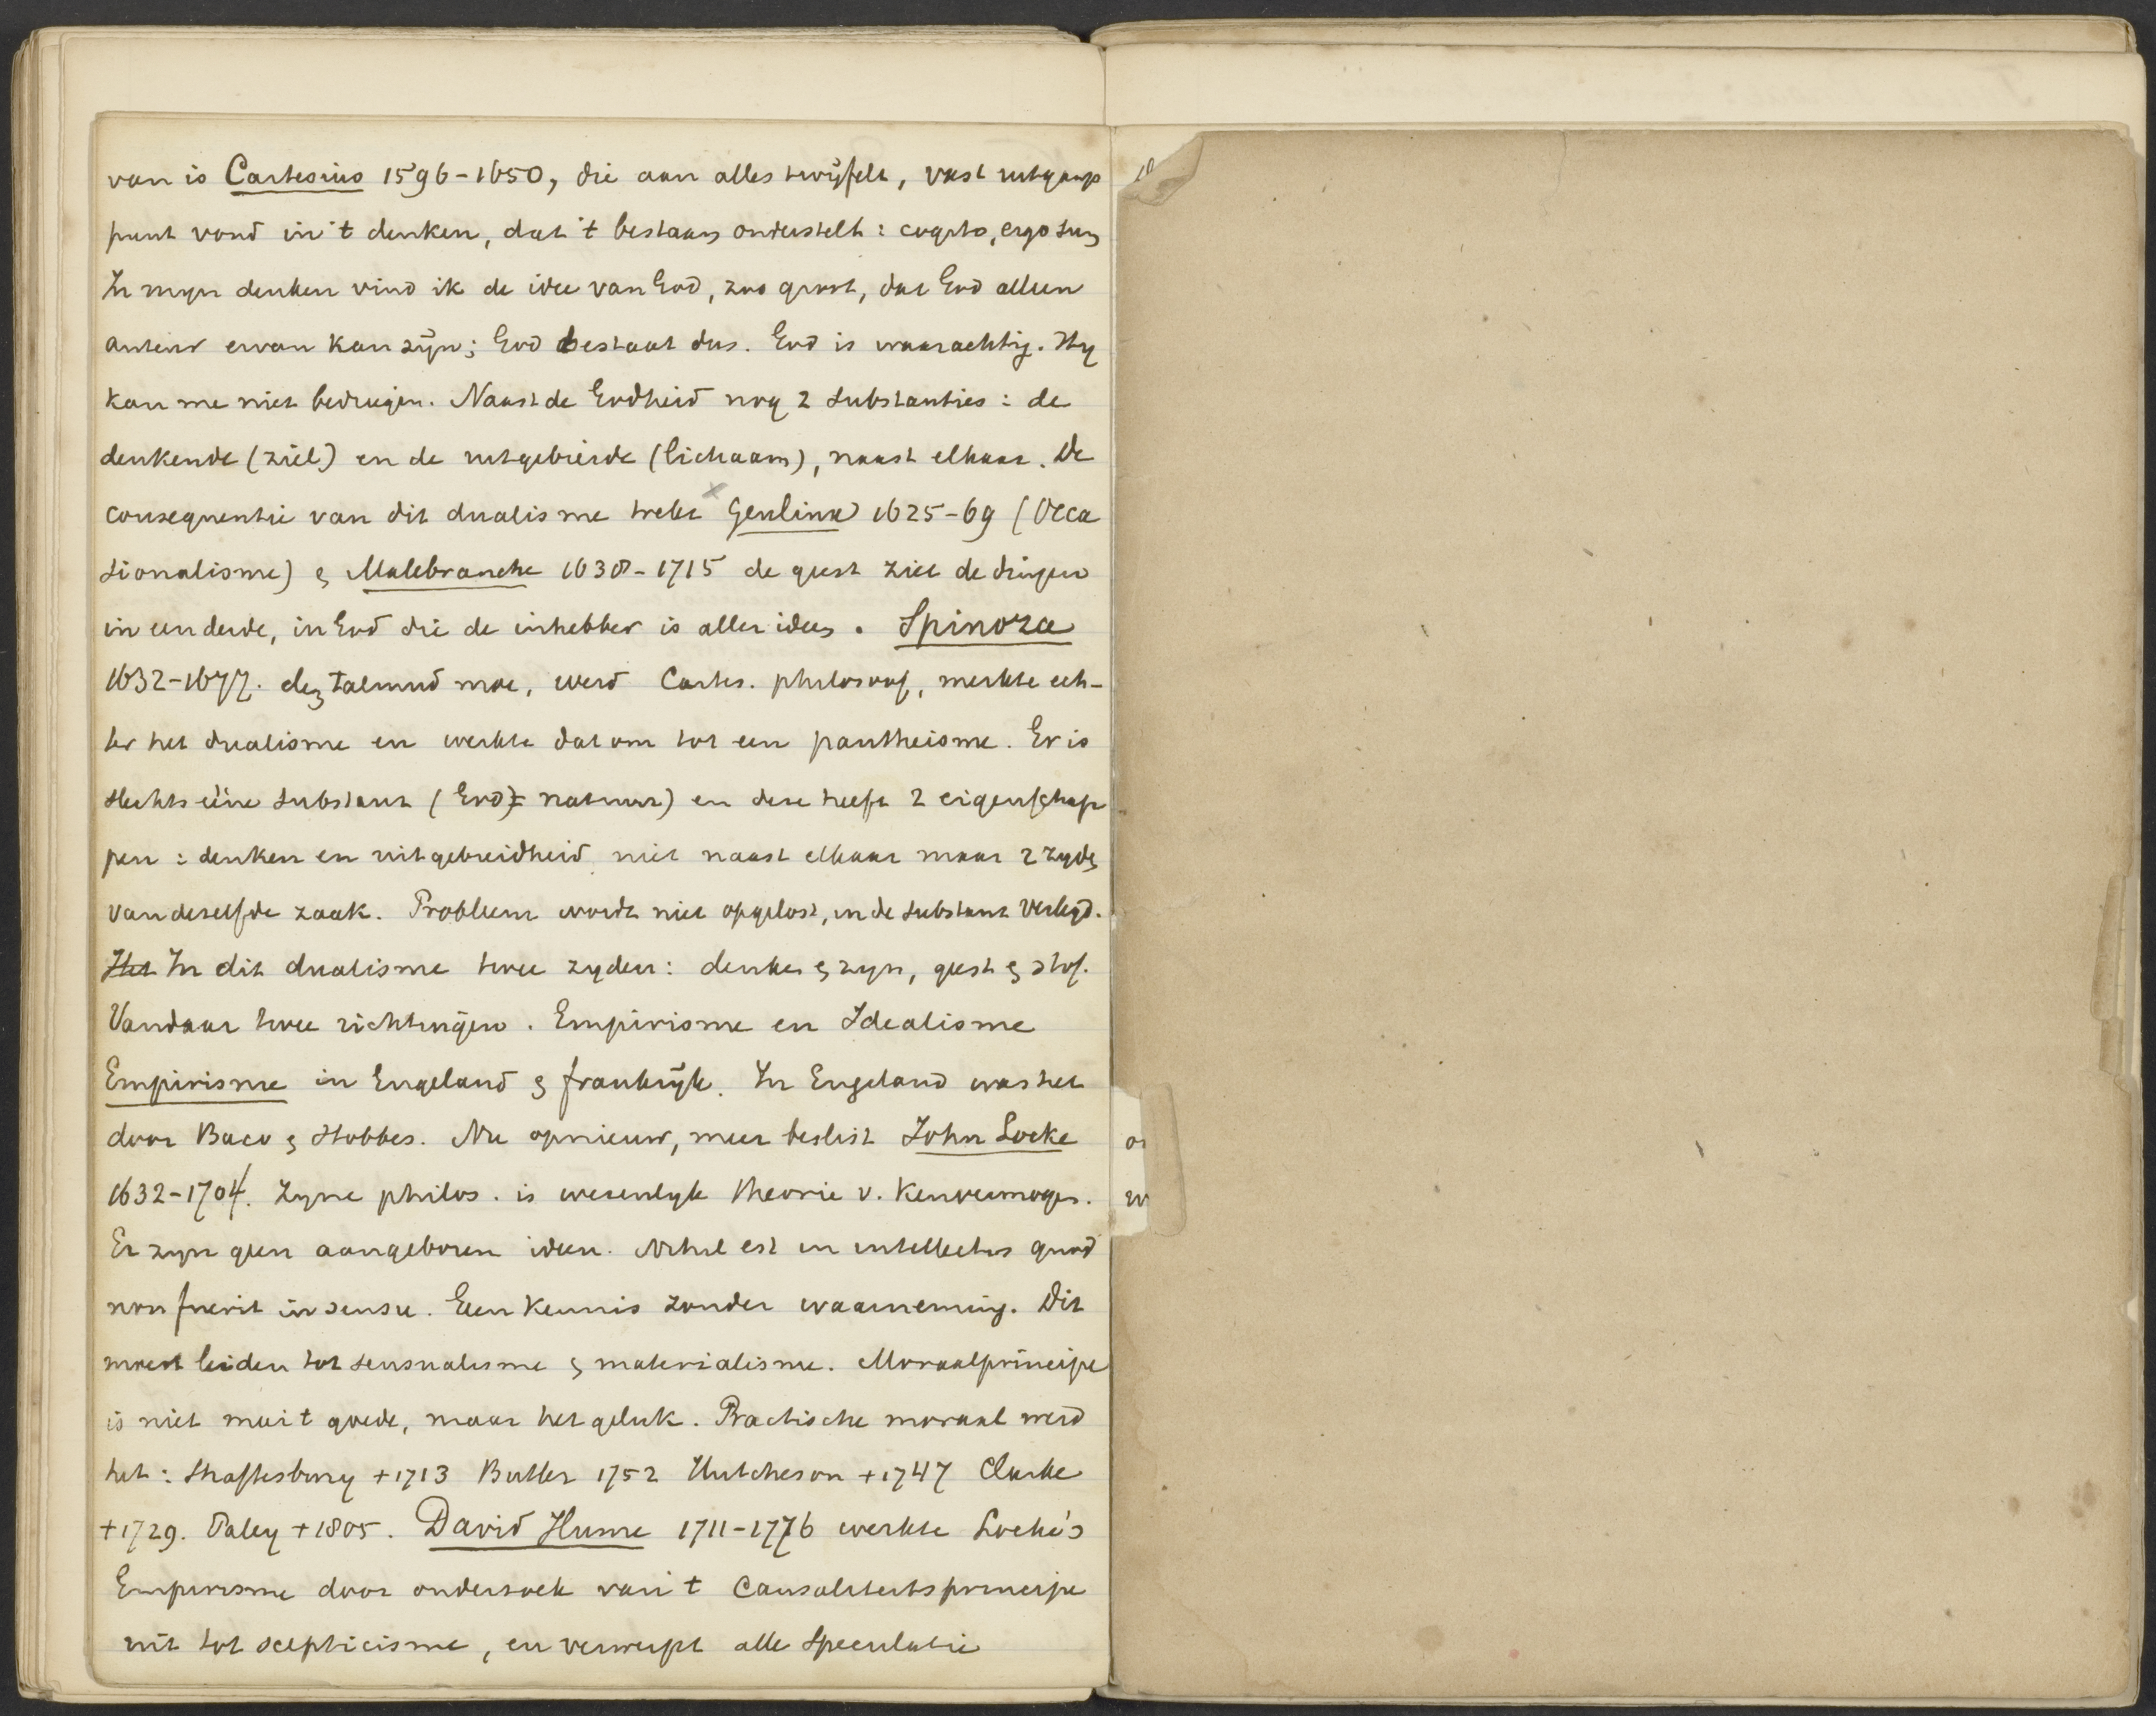 van is Cartesius 1596-1650, die aan alles twijfelt, vast uitgangs
punt vond in 't denken, dat 't bestaan onderstelt: cogito, ergo sum
In myn denken vind ik de idee van God, zoo groot, dat God alleen
auteur ervan kan zijn; God bestaat dus. God is waarachtig. Hy
kan me niet bedriegen. Naast de Godheid nog 2 substanties: de
denkende (ziel) en de uitgebreide (lichaam), naast elkaar. De
consequentie van dit dualisme trekt Geulinx 1625-69 (Occa
sionalisme) & Malebranche 1638-1715 de geest ziet de dingen
in een derde, in God die de inhebber is aller ideen. Spinoza
1632-1677. den Talmud moe, werd Cartes. philosoof, merkte ech-
ter het dualisme en werkte dat om tot een pantheisme. Er is
slechts ééne substant (God = natuur) en deze heeft 2 eigenschap
pen: denken en uitgebreidheid niet naast elkaar maar 2 zyden
van dezelfde zaak. Probleem wordt niet opgelost, in de substant verlegd.
Het In dit dualisme twee zyden: denken & zyn, geest & stof.
Vandaar twee richtingen. Empirisme en Idealisme
Empirisme in Engeland & frankrijk. In Engeland was het
door Baco & Hobbes. Nu opnieuw, meer beslist John Locke
1632-1704. Zyne philos. is wezenlyk theorie v. Kenvermogen.
Er zyn geen aangeboren ideen. Nihil est in intellectus quod
non fuerit in sensu. Geen kennis zonder waarneming. Dit
moest leiden tot sensualisme & materialisme. Moraalprincipe
is niet meer 't goede, maar het geluk. Practische moraal werd
het: Shaftesbury +1713 Butler 1752 Hutcheson +1747 Clarke
+1729. Paley +1805. David Hume 1711-1776 werkte Locke's
Empirisme door onderzoek van 't Causaliteitsprincipe
uit tot scepticisme, en verwerpt alle speculatie